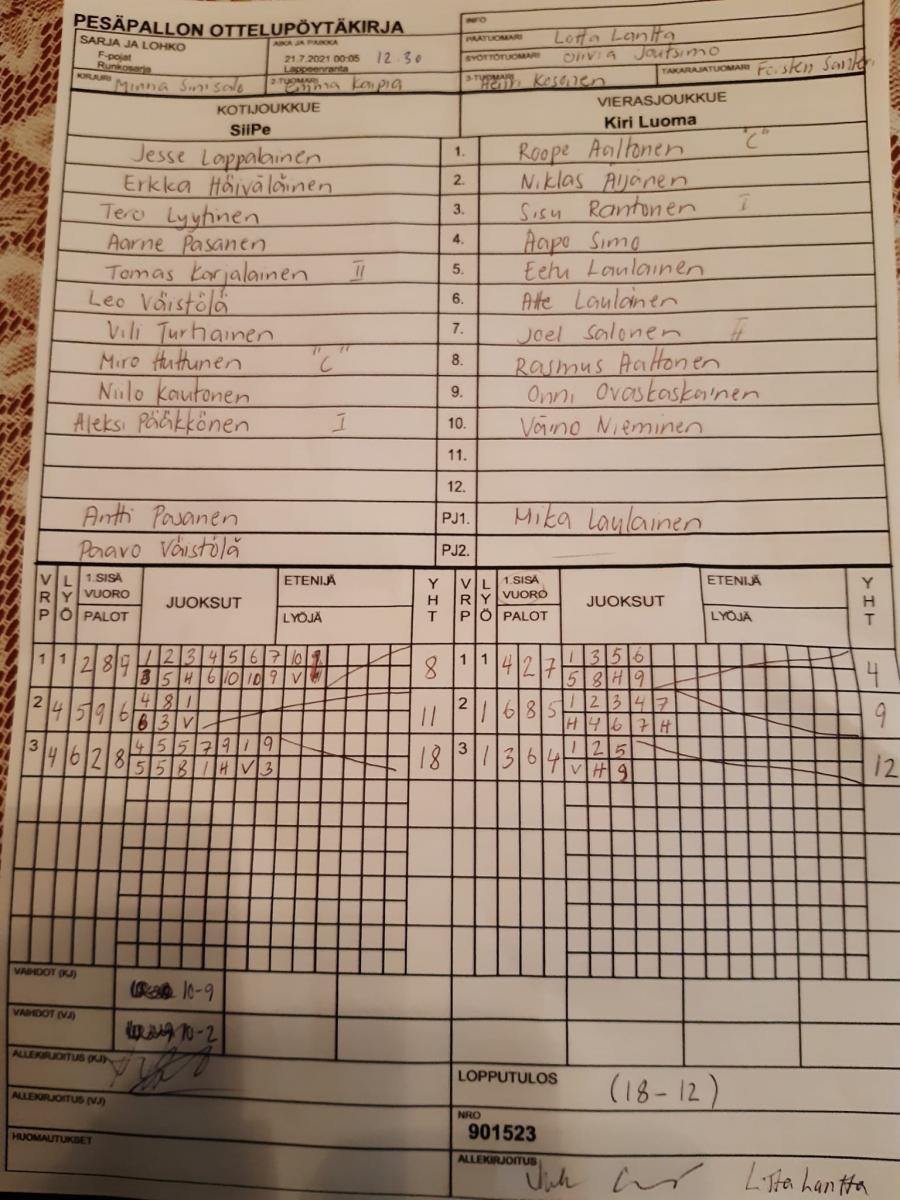 PESÄPALLON OTTELUPÖYTÄKIRJA
SARJA JA LOHKO
F-pojat
Runkosarja
AIKA JA PAIKKA
21.7.2021 00:05 12.30
Lappeenranta
KIRJURI Minna Sinisalo
2-TUOMARI Emma Kaipia
INFO
PÄÄTUOMARI Lotta Lantta
SYÖTTÖTUOMARI Olivia Joutsimo
3-TUOMARI Kosonen
TAKARAJATUOMARI
KOTIJOUKKUE
SiiPe
VIERASJOUKKUE
Kiri Luoma
Jesse Lappalainen 1. Roope Aaltonen "C"
Erkka Häiväläinen 2. Niklas Äijänen
Tero Lyytinen 3. Sisu Rantonen I
Aarne Pasanen 4. Aapo Simo
Tomas Karjalainen II 5. Eetu Laulainen
Leo Väistölä 6. Atte Laulainen
Vili Turhainen 7. Joel Salonen II
Miro Huttunen "C" 8. Rasmus Aaltonen
Niilo Kautonen 9. Onni Ovaskaskainen
Aleksi Pääkkönen I 10. Väinö Nieminen
11.
12.
Antti Pasanen PJ1. Mika Laulainen
Paavo Väistölä PJ2.
VRP LYÖ 1.SISÄ VUORO PALOT JUOKSUT ETENIJÄ LYÖJÄ YHT VRP LYÖ 1.SISÄ VUORO PALOT JUOKSUT ETENIJÄ LYÖJÄ YHT
1 1 2 8 9 1 2 3 4 5 6 7 10 8 1 1 4 2 7 1 3 5 6 4
3 5 H 6 10 10 9 V 5 8 H 9
2 4 5 9 6 4 8 1 11 2 1 6 8 5 1 2 3 4 7 9
6 3 V H 4 6 7 H
3 4 6 2 8 4 5 5 7 9 1 9 18 3 1 3 6 4 1 2 5 12
5 5 8 1 H V 3 V H 9
VAIHDOT (KJ) 10-9
VAIHDOT (VJ) 10-2
ALLEKIRJOITUS (KJ)
ALLEKIRJOITUS (VJ)
HUOMAUTUKSET
LOPPUTULOS (18-12)
NRO
901523
ALLEKIRJOITUS Lotta Lantta